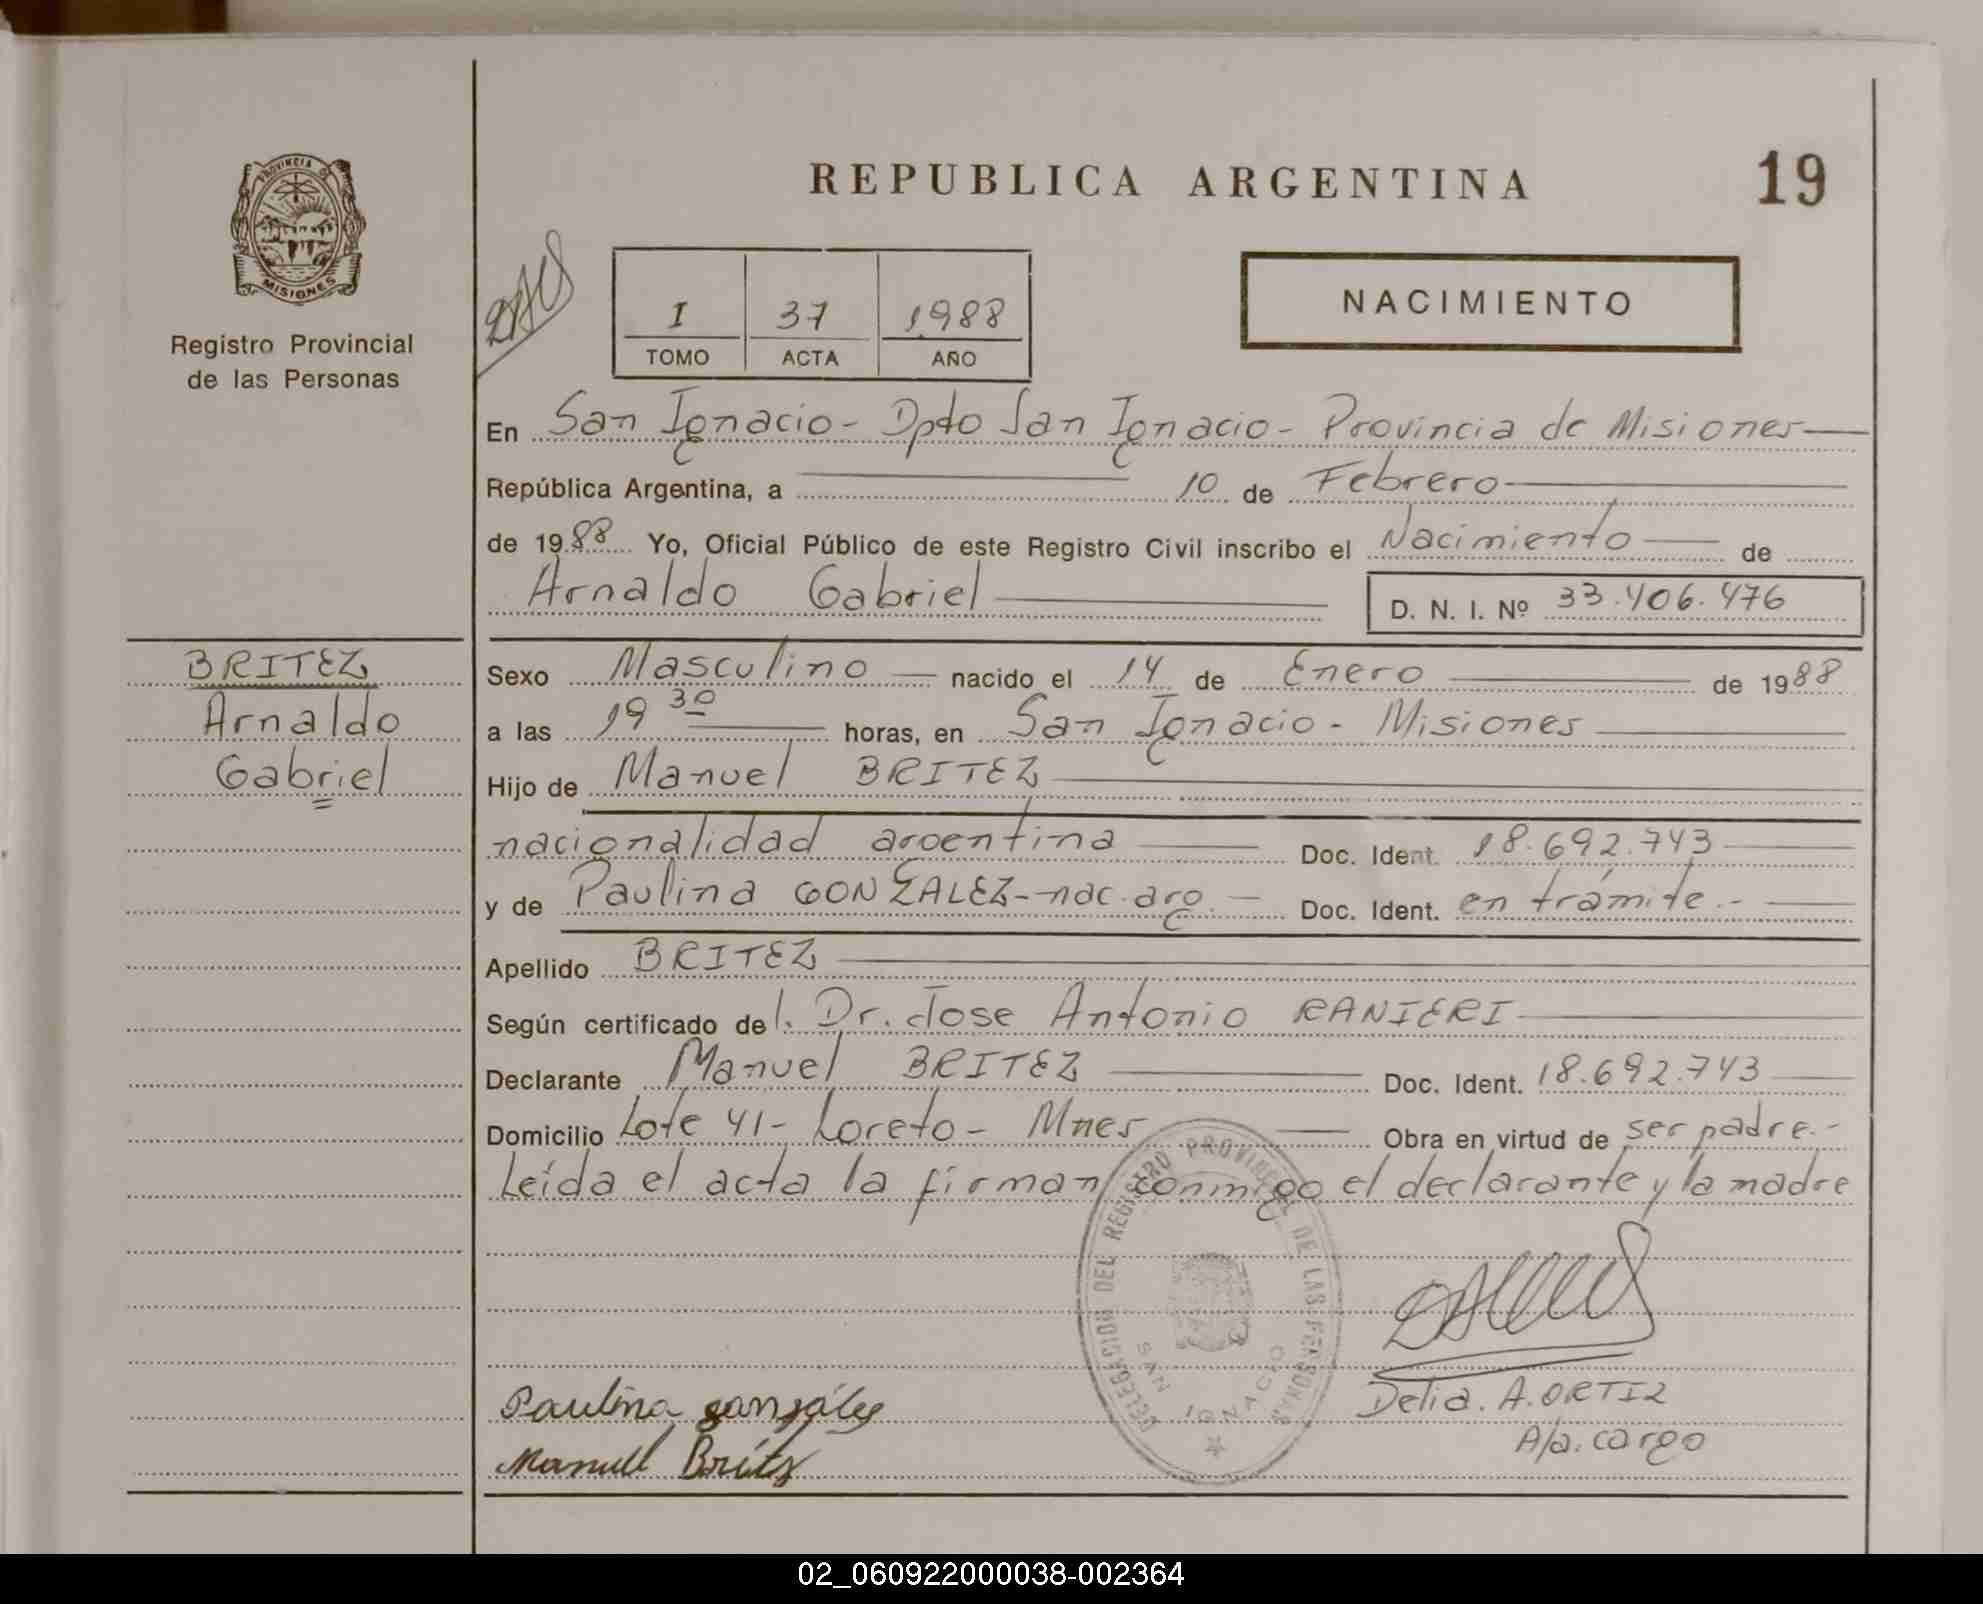 REPUBLICA ARGENTINA
19
PROVINCIA DE
MISIONES
Registro Provincial
de las Personas
I 37 1988
TOMO ACTA AÑO
NACIMIENTO
En San Ignacio - Dpto San Ignacio - Provincia de Misiones
República Argentina, a 10 de Febrero
de 1988 Yo, Oficial Público de este Registro Civil inscribo el Nacimiento de
Arnaldo Gabriel D. N. I. Nº 33.406.476
BRITEZ
Arnaldo
Gabriel
Sexo Masculino nacido el 14 de Enero de 1988
a las 19 30 horas, en San Ignacio - Misiones
Hijo de Manuel BRITEZ
nacionalidad argentina Doc. Ident. 18.692.743
y de Paulina GONZALEZ - nac. arg. Doc. Ident. en trámite.-
Apellido BRITEZ
Según certificado del. Dr. Jose Antonio RANIERI
Declarante Manuel BRITEZ Doc. Ident. 18.692.743
Domicilio Lote 41 - Loreto - Mnes Obra en virtud de ser padre.-
Leída el acta la firman conmigo el declarante y la madre
DELEGACION DEL REGISTRO PROVINCIAL DE LAS PERSONAS
SAN IGNACIO
Paulina gonzáles
Manuel Brítez
Delia. A. ORTIZ
A/a. cargo
02_060922000038-002364